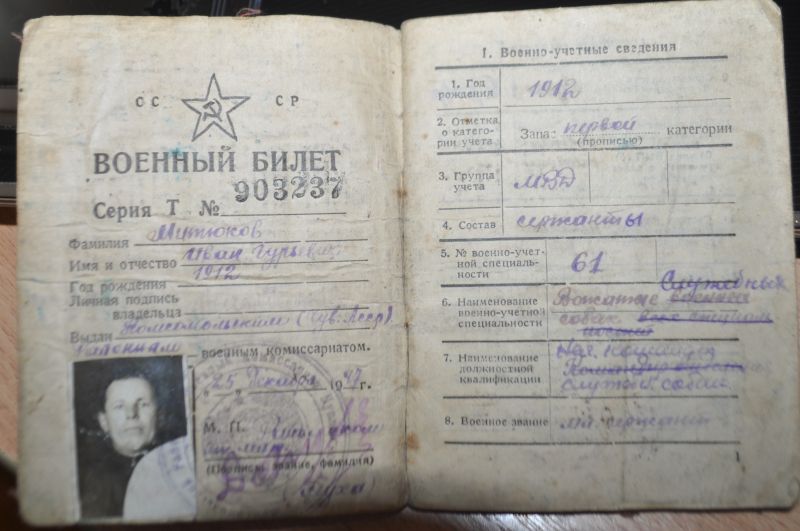 СС СР
ВОЕННЫЙ БИЛЕТ
Серия Т № 903237
Фамилия Мутюков
Имя и отчество Иван Гурьевич
Год рождения 1912
Личная подпись
владельца
Выдан Комсомольским (Чув. АССР)
Районным военным комиссариатом.
„25" декабря 1947 г.
М. П.
(Подпись, звание, фамилия)
1. Военно-учетные сведения
1. Год
рождения 1912
2. Отметка
о катего-
рии учета Запас первой категории
(прописью)
3. Группа
учета МВД
4. Состав сержанты
5. № военно-учет-
ной специаль-
ности 61
6. Наименование
военно-учетной
специальности
Вожатые служебных
собак
7. Наименование
должностной
квалификации
служб собак
8. Военное звание мл. сержант
1